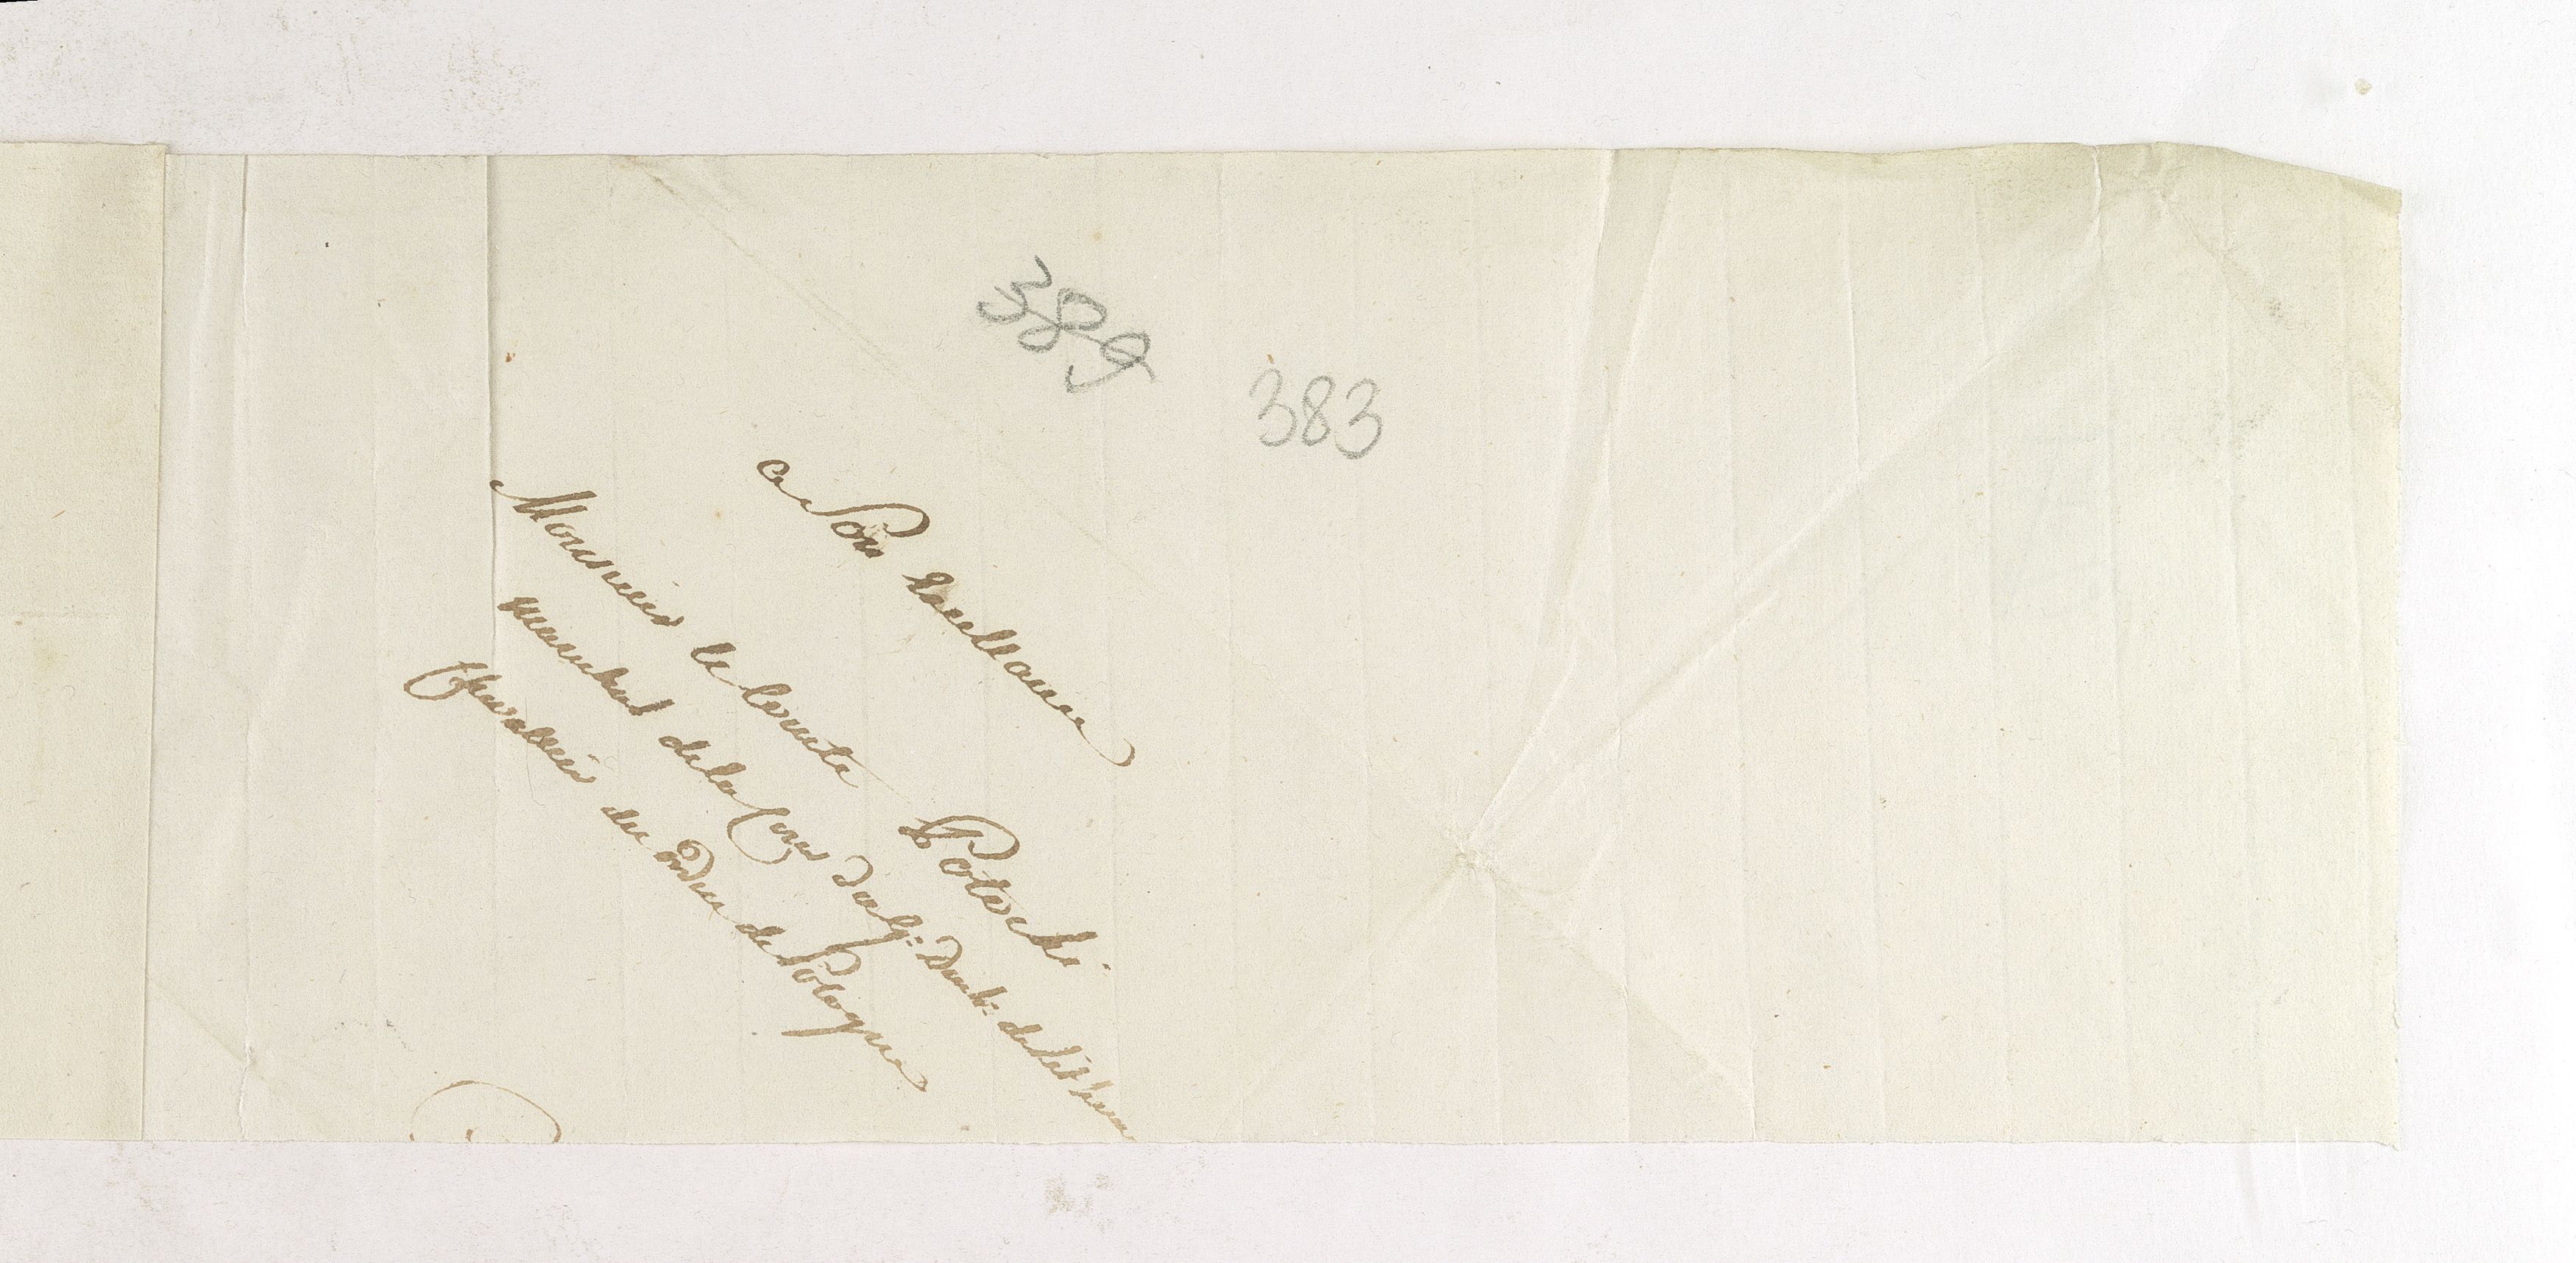 389
383
a Son Excellence
Monsieur le Comte Potocki
marechal de la Cour du Duché de Lithuan
Chevalier des ordres de Pologne